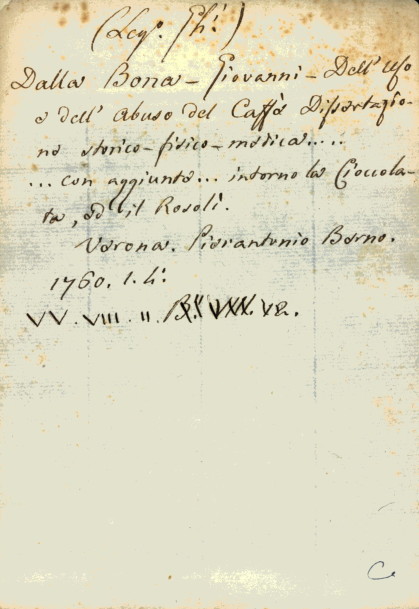 (Leg°. Ph:)
Dalla Bona - Giovanni - Dell' Uso
e dell' Abuso del Caffè Dissertazio-
ne storico-fisico-medica.....
... con aggiunte... intorno la Cioccola-
ta, ed il Rosolì.
Verona. Pierantonio Berno.
1760. 1. 4:
VV. VIII. II.
C